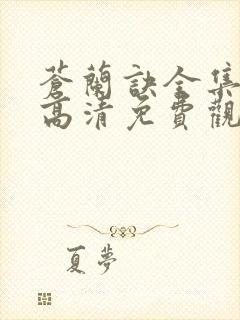 蒼蘭訣全集
高清免費觀
夏夢